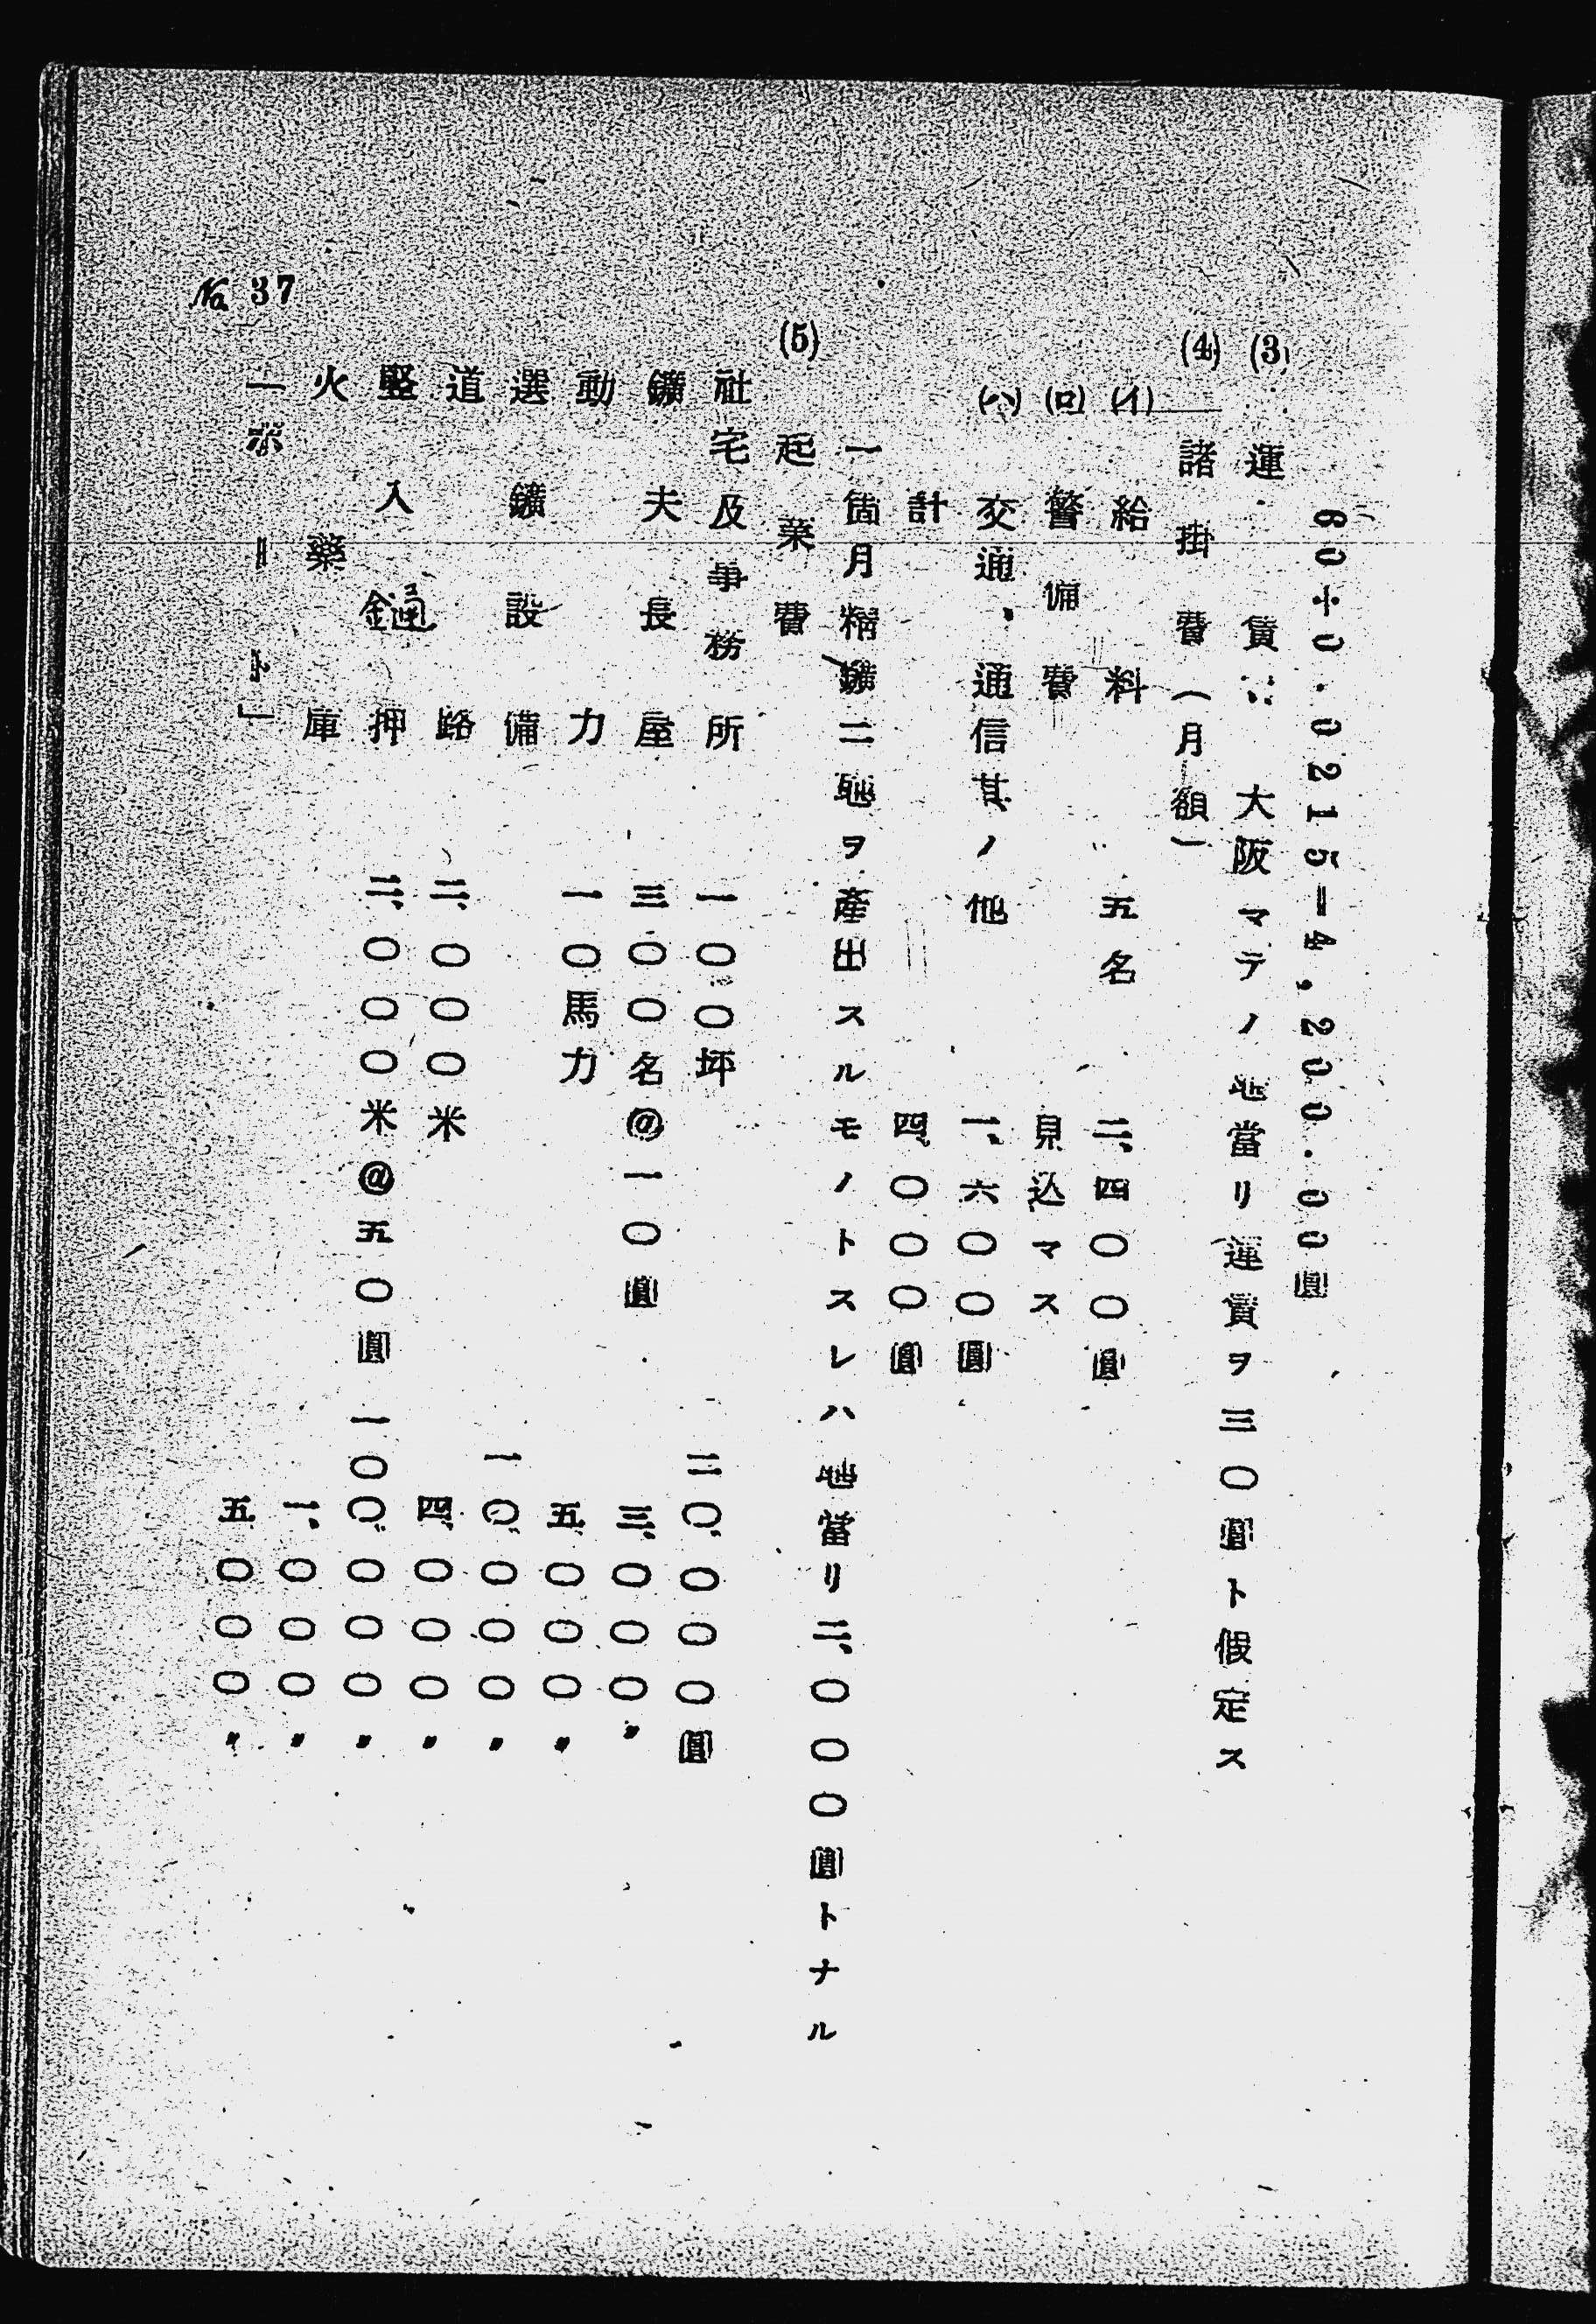 90÷0.0215=4,200.00圓
(3) 運賃： 大阪マテノ瓲當リ運賃ヲ三〇圓ト假定ス
(4) 諸掛費(月額)
(イ) 給料 五名 二、四〇〇圓
(ロ) 警備費 見込マス
(ハ) 交通、通信其ノ他 一、六〇〇圓
計 四、〇〇〇圓
一箇月精鑛二瓲ヲ産出スルモノトスレハ瓲當リ二、〇〇〇圓トナル
(5) 起業費
社宅及事務所 一〇〇坪 二〇、〇〇〇圓
鑛夫長屋 三〇〇名@一〇圓 三、〇〇〇〃
動力 一〇馬力 五、〇〇〇〃
選鑛設備 一〇、〇〇〇〃
道路 二、〇〇〇米 四、〇〇〇〃
竪入𨫤押 二、〇〇〇米@五〇圓 一〇〇、〇〇〇〃
火藥庫 一、〇〇〇〃
「ボート」 五、〇〇〇〃
№ 37